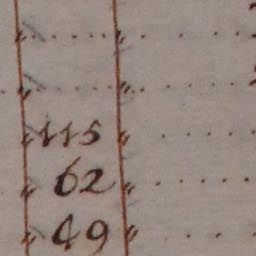 " "
" "
" 115 "
" 62 "
" 49 "